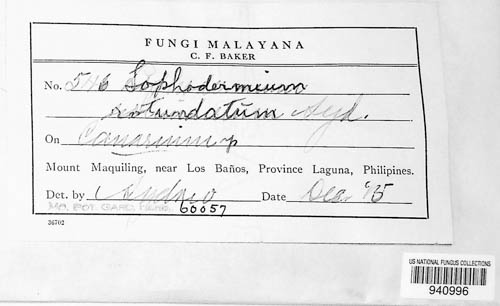 FUNGI MALAYANA
C. F. BAKER
No. 546 Lophodermium
rotundatum Syd.
On Canarium
Mount Maquiling, near Los Baños, Province Laguna, Philipines.
Det. by Date Dec. '15
MO. BOT. GARD. 60057
36702
US NATIONAL FUNGUS COLLECTIONS
940996